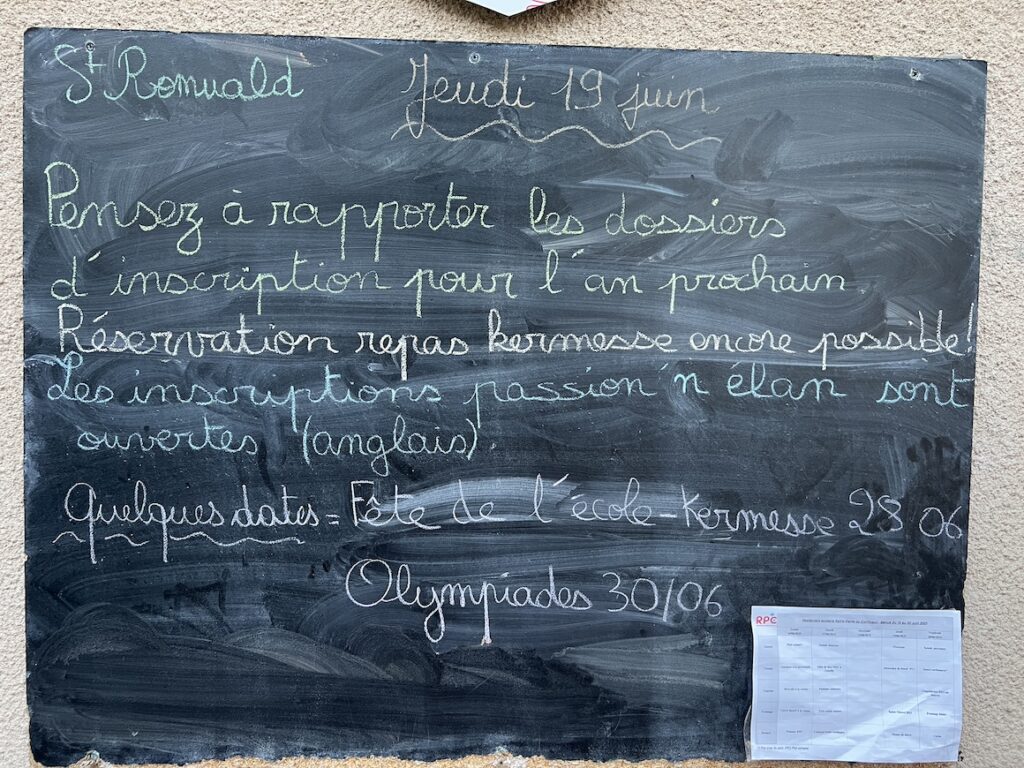 St Romuald
Jeudi 19 juin
Pensez à rapporter les dossiers
d'inscription pour l'an prochain.
Réservation repas kermesse encore possible!
Les inscriptions passion'n élan sont
ouvertes (anglais)
Quelques dates = Fête de l'école - Kermesse 28 06
Olympiades 30/06
RPC